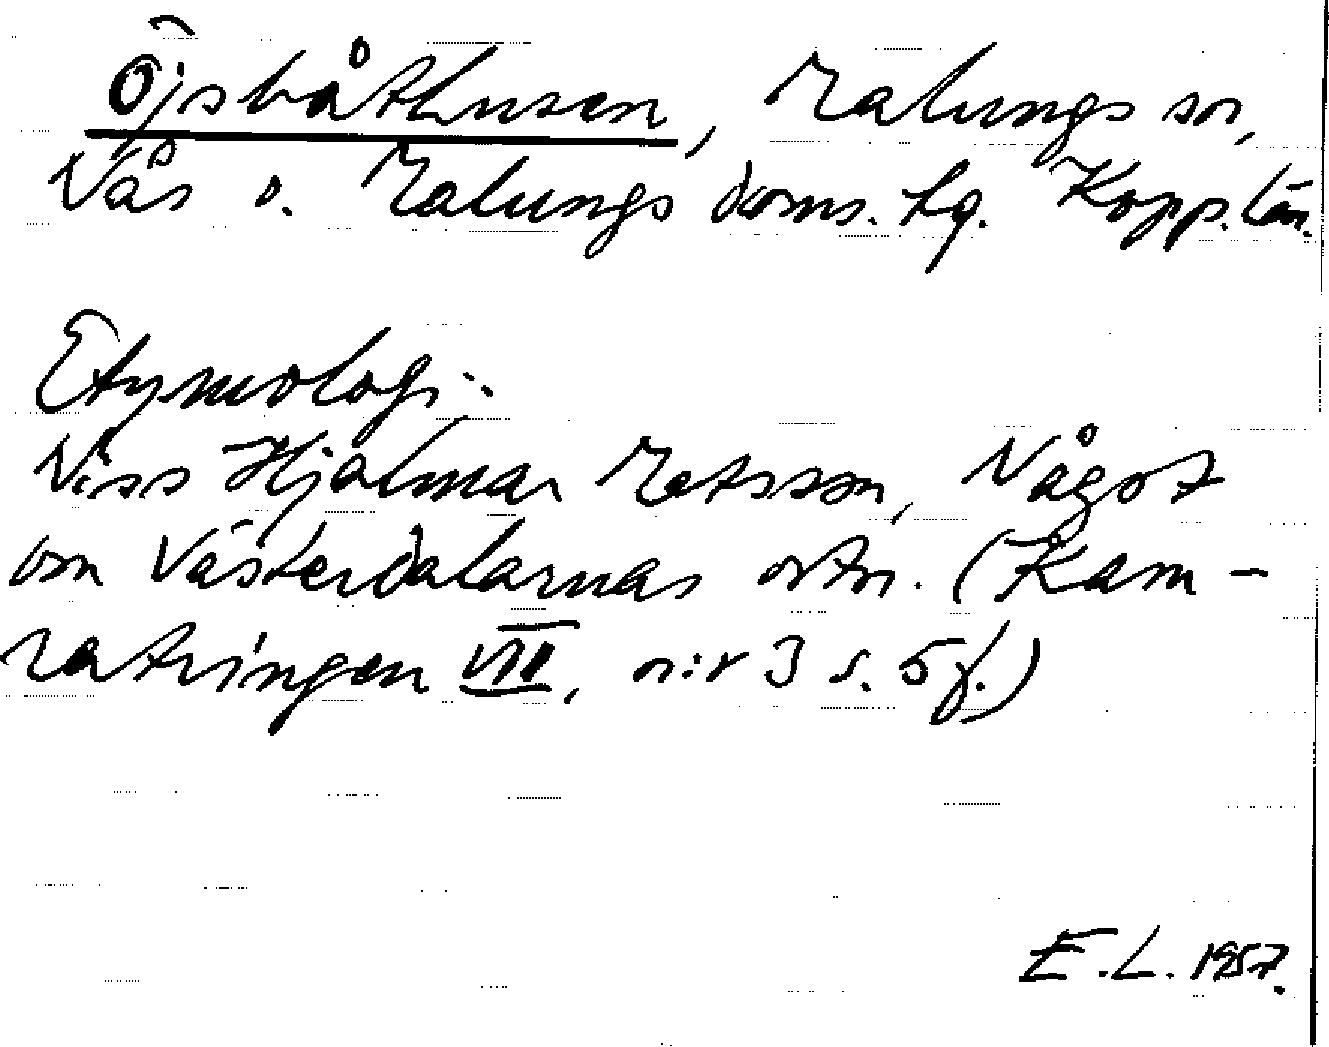 Öjsbåthusen, Malungs sn,
Nås o. Malungs doms. hg. Kopp. län.
Etymologi:
Viss Hjalmar Matsson, Något
om Västerdalarnas ortn. (Kam-
ratringen VII, n:r 3 s. 5 f.)
E. L. 1957.